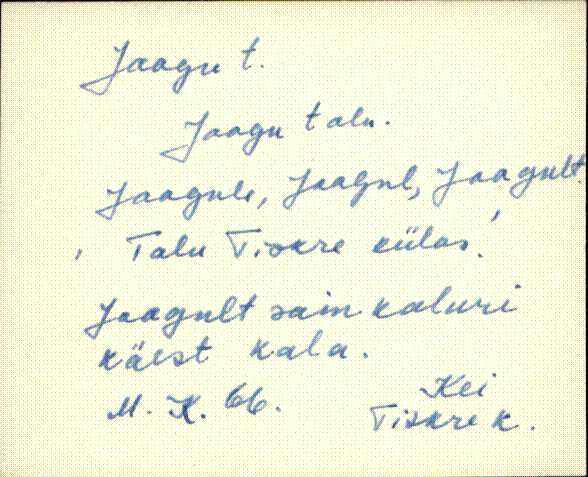 Jaagu t.
Jaagu talu.
Jaagule, Jaagul, Jaagult.
'Talu Tiskre külas.'
Jaagult sain kaluri
käest kala.
M. K. 66. Kei
Tiskre k.